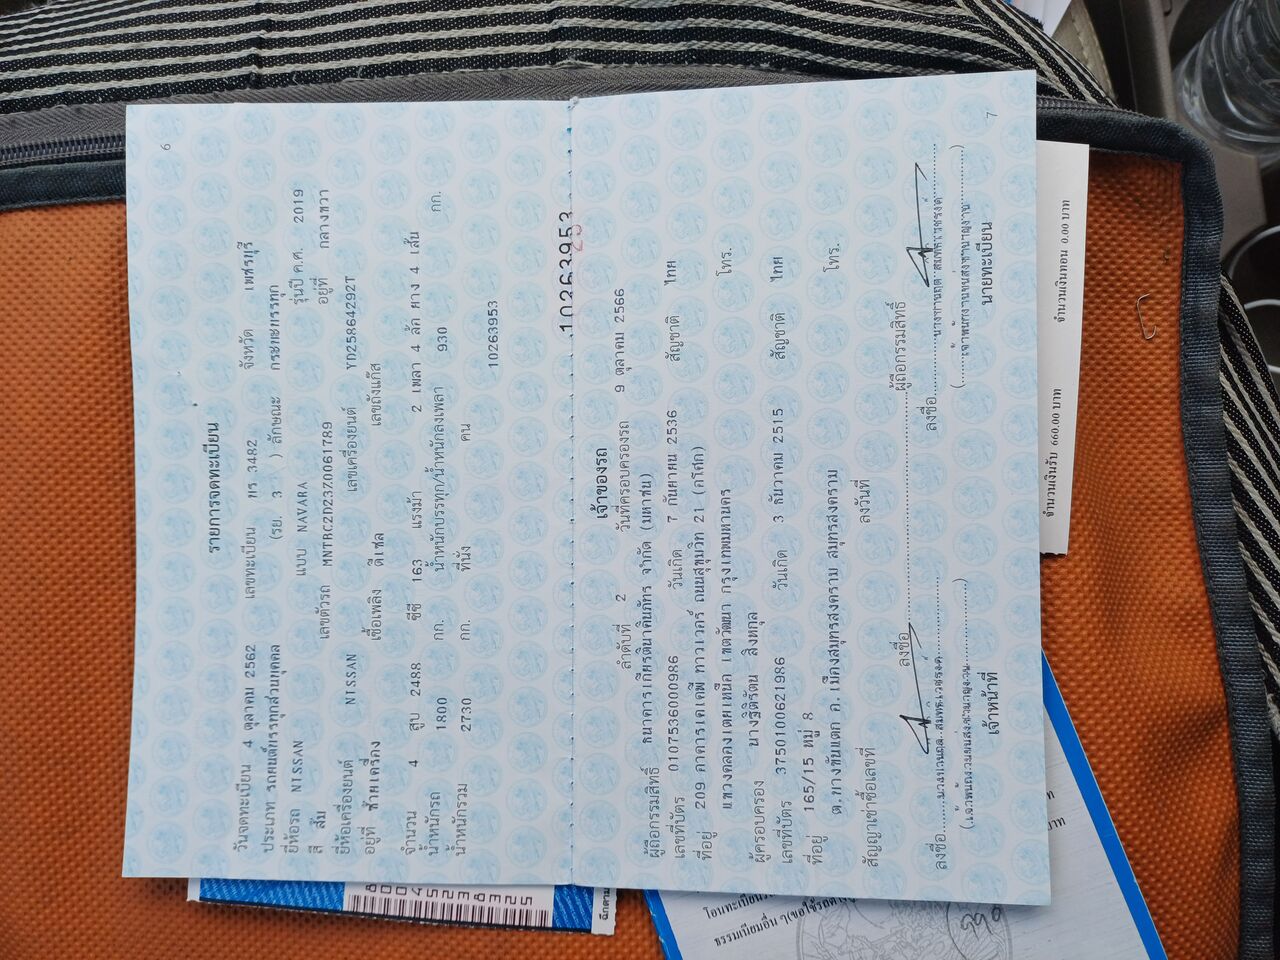 6
รายการจดทะเบียน
วันจดทะเบียน 4 ตุลาคม 2562 เลขทะเบียน 3482 จังหวัด เพชรบุรี
ประเภท รถยนต์บรรทุกส่วนบุคคล (รย. 3 ) ลักษณะ กระบะบรรทุก
ยี่ห้อรถ NISSAN แบบ NAVARA รุ่นปี ค.ศ. 2019
สี ส้ม เลขตัวรถ MNTBC2D23Z0061789 อยู่ที่ กลางขวา
ยี่ห้อเครื่องยนต์ NISSAN เลขเครื่องยนต์ YD25864292T
อยู่ที่ ซ้ายเครื่อง เชื้อเพลิง ดีเซล เลขถังแก๊ส
จำนวน 4 สูบ 2488 ซีซี 163 แรงม้า 2 เพลา 4 ล้อ ยาง 4 เส้น
น้ำหนักรถ 1800 กก. น้ำหนักบรรทุก/น้ำหนักลงเพลา 930 กก.
น้ำหนักรวม 2730 กก. ที่นั่ง คน
10263953
10263953
เจ้าของรถ
ลำดับที่ 2 วันที่ครอบครองรถ 9 ตุลาคม 2566
ผู้ถือกรรมสิทธิ์ ธนาคารเกียรตินาคินภัทร จำกัด (มหาชน)
เลขที่บัตร 0107536000986 วันเกิด 7 กันยายน 2536 สัญชาติ ไทย
ที่อยู่ 209 อาคารเคเคพี ทาวเวอร์ ถนนสุขุมวิท 21 (อโศก)
แขวงคลองเตยเหนือ เขตวัฒนา กรุงเทพมหานคร โทร.
ผู้ครอบครอง นางฐิติรัตน์ สิงหกุล
เลขที่บัตร 3750100621986 วันเกิด 3 ธันวาคม 2515 สัญชาติ ไทย
ที่อยู่ 165/15 หมู่ 8
ต.บางขันแตก อ.เมืองสมุทรสงคราม สมุทรสงคราม โทร.
สัญญาเช่าซื้อเลขที่ ลงวันที่
ลงชื่อ ผู้ถือกรรมสิทธิ์
ลงชื่อ ลงชื่อ
เจ้าหน้าที่ นายทะเบียน
7
จำนวนเงินรับ 660.00 บาท จำนวนเงินทอน 0.00 บาท